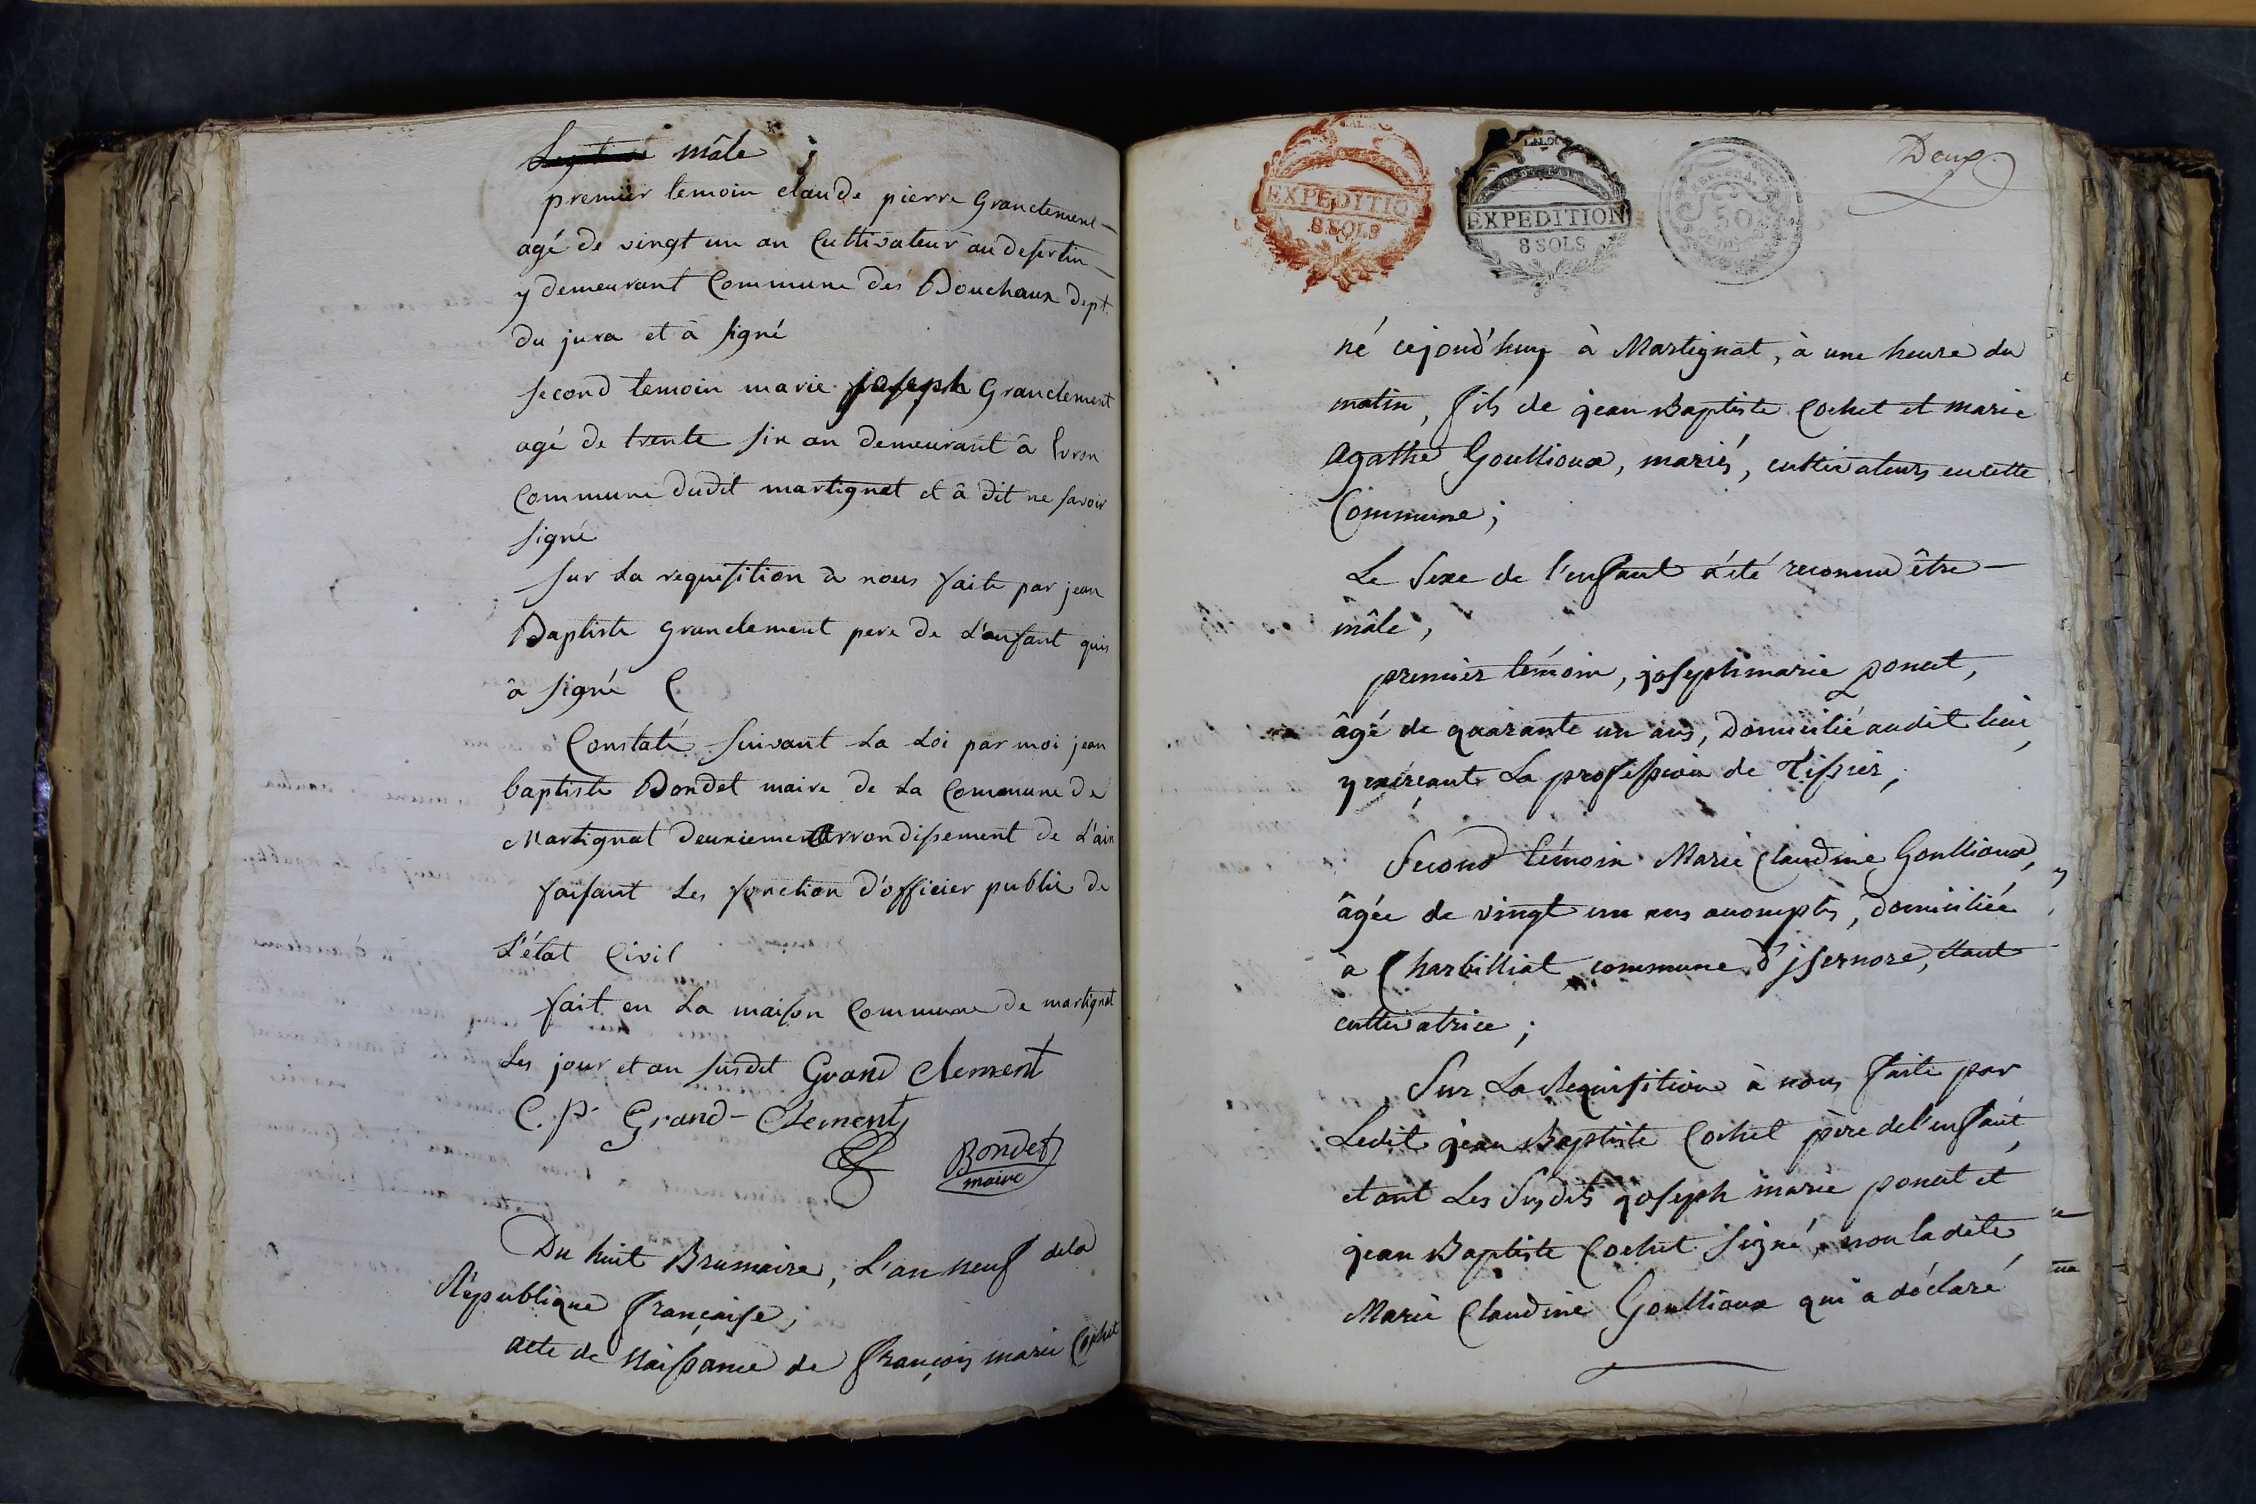 mâle ;
premier temoin claude pierre Granclement
agé de vingt un an Cultivateur au desertin
y demeurant Commune des Bouchaux dept.
du jura et â signé
second temoin marie joseph Granclement
agé de trente six an demeurant â
Commune dudit martignat et â dit ne savoir
signé
sur La requisition a nous faite par jean
Baptiste Granclement pere de L'enfant qui
â signé
Constaté suivant La Loi par moi jean
baptiste Bondet maire de La Commune de
Martignat deuxieme Arrondissement de L'ain
faisant Les fonction d'officier public de
L'état Civil
fait en La maison Commune de martignat
Les jour et an susdit Grand Clement
C. P. Grand-Clement
Bondet
maire
Du huit Brumaire, L'an neuf de la
République française,
acte de Naissance de françois marie Cochet
EXPEDITION
8 SOLS
EXPEDITION
8 SOLS
50
Deux.
né cejourd'huy à Martignat, à une heure du
matin, fils de jean Baptiste Cochet et marie
Agathe Goullioux, mariés, cultivateurs en cette
Commune ;
Le Sexe de l'enfant a été reconnu être
mâle,
premier témoin, joseph marie poncet,
âgé de quarante un ans, Domicilié audit lieu,
y exercant La profession de Tissier,
Second témoin Marie Claudine Goullioux,
âgée de vingt un ans accomptis, domiciliée
à Charbilliat commune d'jsernore, étant
cultivatrice ;
Sur La Requisition à nous faite par
Ledit jean Baptiste Cochet père de l'enfant,
et ont Les Susdits joseph marie poncet et
jean Baptiste Cochet signé, non la dite
Marie Claudine Goullioux qui a déclaré